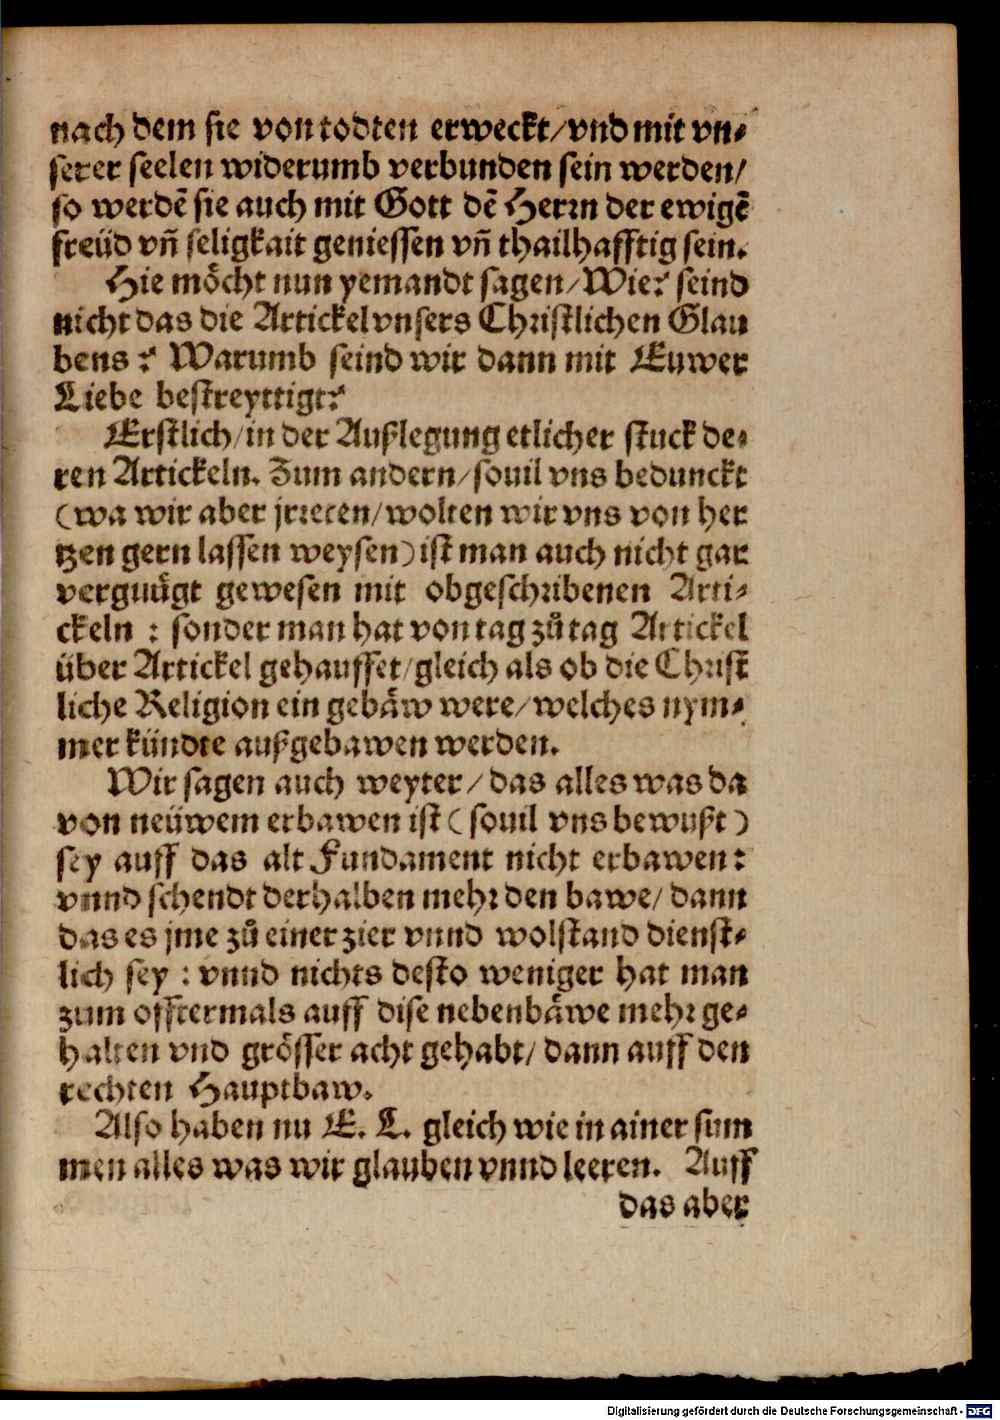 nach dem sie von todten erweckt/vnd mit vn⸗
serer seelen widerumb verbunden sein werden/
so werdẽ sie auch mit Gott dẽ Herꝛn der ewigẽ
freüd vñ seligkait geniessen vñ thailhafftig sein.
Hie moͤcht nun yemandt sagen/Wie? seind
nicht das die Artickel vnsers Chꝛistlichen Glau
bens? Warumb seind wir dann mit Euwer
Liebe bestreyttigt?
Erstlich/in der Außlegung etlicher stuck de⸗
ren Artickeln. Zum andern/souil vns bedunckt
(wa wir aber jrꝛeten/wolten wir vns von her
tzen gern lassen weysen) ist man auch nicht gar
vergnuͤgt gewesen mit obgeschꝛibenen Arti⸗
ckeln : sonder man hat von tag zuͦ tag Artickel
über Artickel gehauffet/gleich als ob die Chꝛist
liche Religion ein gebaͤw were/welches nym⸗
mer kündte außgebawen werden.
Wir sagen auch weyter/das alles was da
von neüwem erbawen ist (souil vns bewußt)
sey auff das alt Fundament nicht erbawen:
vnnd schendt derhalben mehꝛ den bawe/dann
das es jme zuͦ einer zier vnnd wolstand dienst⸗
lich sey : vnnd nichts desto weniger hat man
zum offtermals auff dise nebenbaͤwe mehꝛ ge⸗
halten vnd groͤsser acht gehabt/dann auff den
rechten Hauptbaw.
Also haben nu E. L. gleich wie in ainer sum
men alles was wir glauben vnnd leeren. Auff
das aber
Digitalisierung gefördert durch die Deutsche Forschungsgemeinschaft - DFG